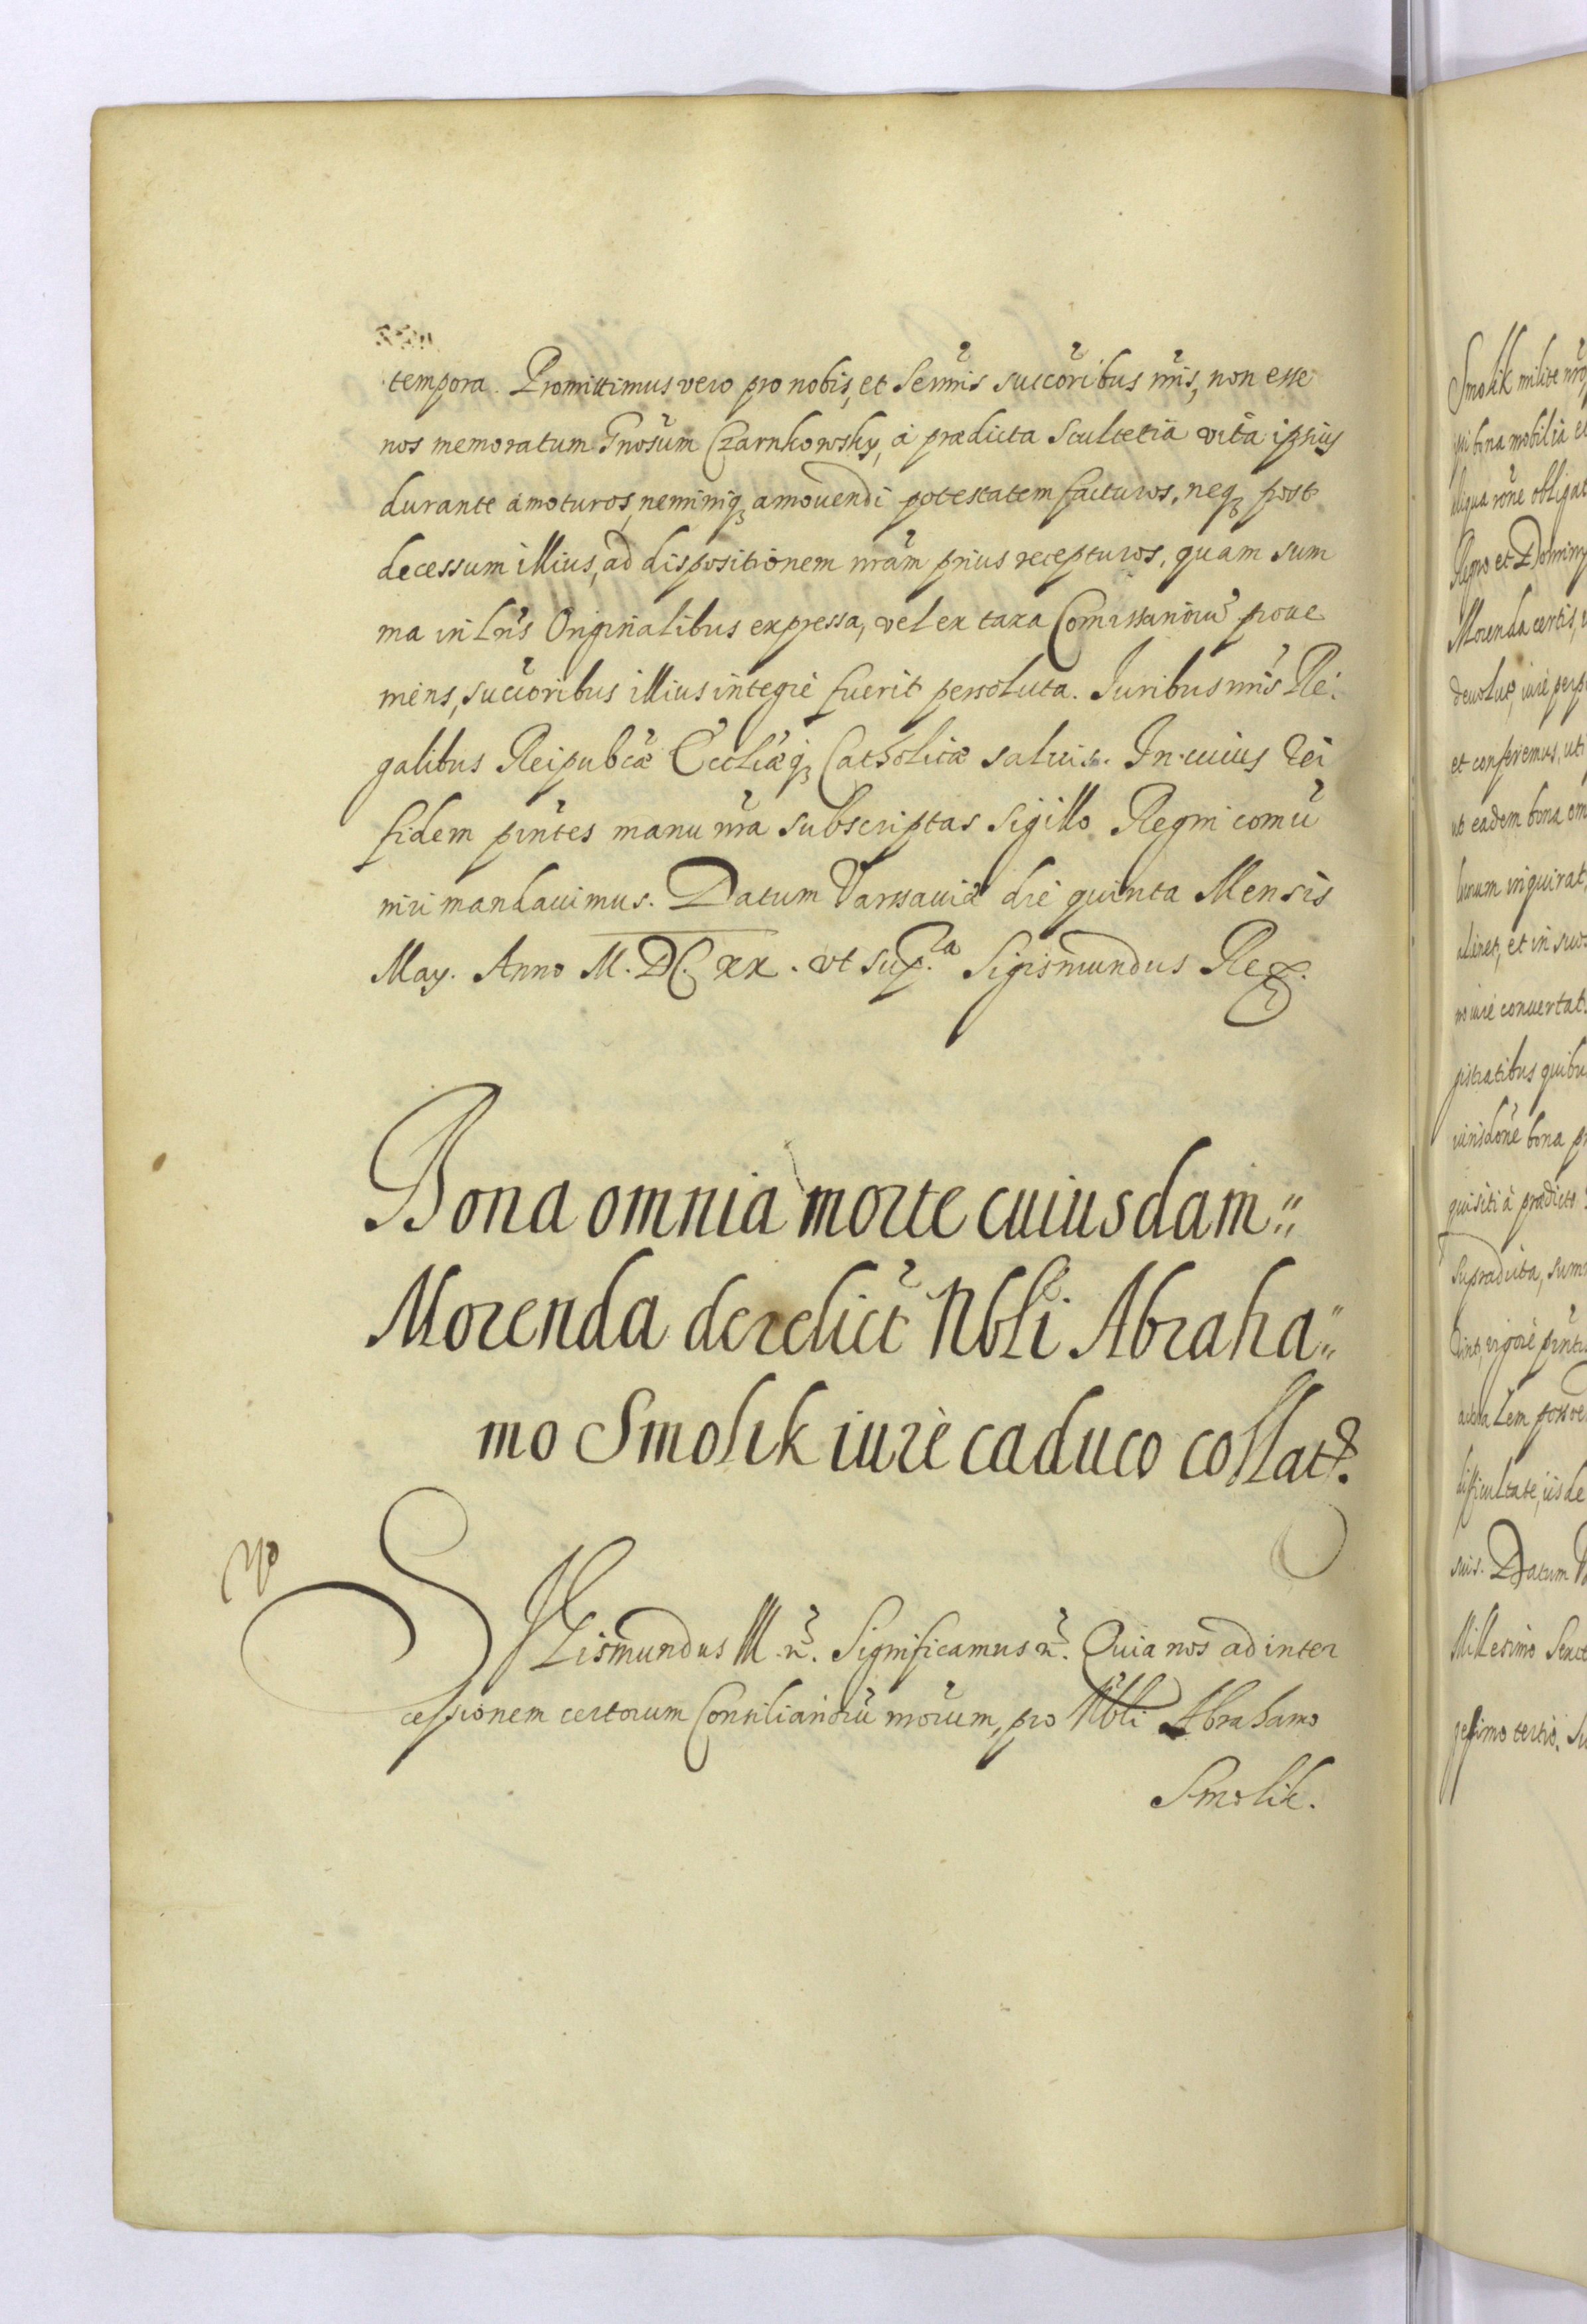 tempora. Promittimus vero pro nobis, et Sermis succoribus nris, non esse
nos memoratum Gnosum Czarnkowsky, à prædicta Scultetia vita ipsius
durante amoturos, neminiq3 amovendi potestatem facturos, neq3 post
decessum illius, ad dispositionem nram prius recepturos, quam sum
ma in Lris Originalibus expressa, vel ex taxa Comissarioru prove
niens, succoribus illius integrè fuerit persoluta. Iuribus nris Re:
galibus Reipubcæ Eccliæq3 Catholicæ salvis. In cuius rei
fidem pntes manu nra subscriptas sigillo Regni comu
niri mandavimus. Datum Varsaviæ die quinta Mensis
May. Anno M.DC.XX. vt sup.a Sigismundus Rex.
Bona omnia morte cuiusdam"
Morenda derelict Nbli Abraha"
mo Smolik iurè caduco collat.
SIGismundus III. n. Significamus n. Quia nos ad inter
cessionem certorum Consiliarioru nrorum, pro Nbli Abrahamo
Smolik.
Smolik milite nro,
qui bona mobilia et
aliqua rone obligat
Regno et Dominy
Morenda certis,
devolut, iurè perp
et conferemus, uti
ut eadem bona om
locum inquirat,
alinet, et in suos
no iurè convertat
gistratibus quibu
iurisdone bona pr
quisiti à prædicto
supradicta, sum
dint, vigorè pnti
actualem posse
difficultate, iis de
suis. Datum
Millesimo Sexce
gesimo tertio. Su